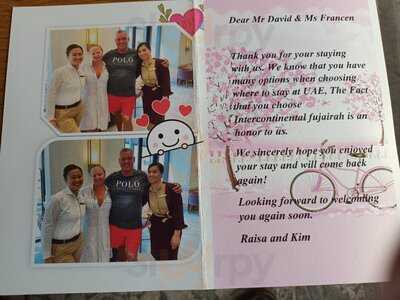 Dear Mr David & Ms Francen
Thank you for your staying
with us. We know that you have
many options when choosing
where to stay at UAE, The Fact
that you choose
Intercontinental fujairah is an
honor to us.
We sincerely hope you enjoyed
your stay and will come back
again!
Looking forward to welcoming
you again soon.
Raisa and Kim
POLO
POLO